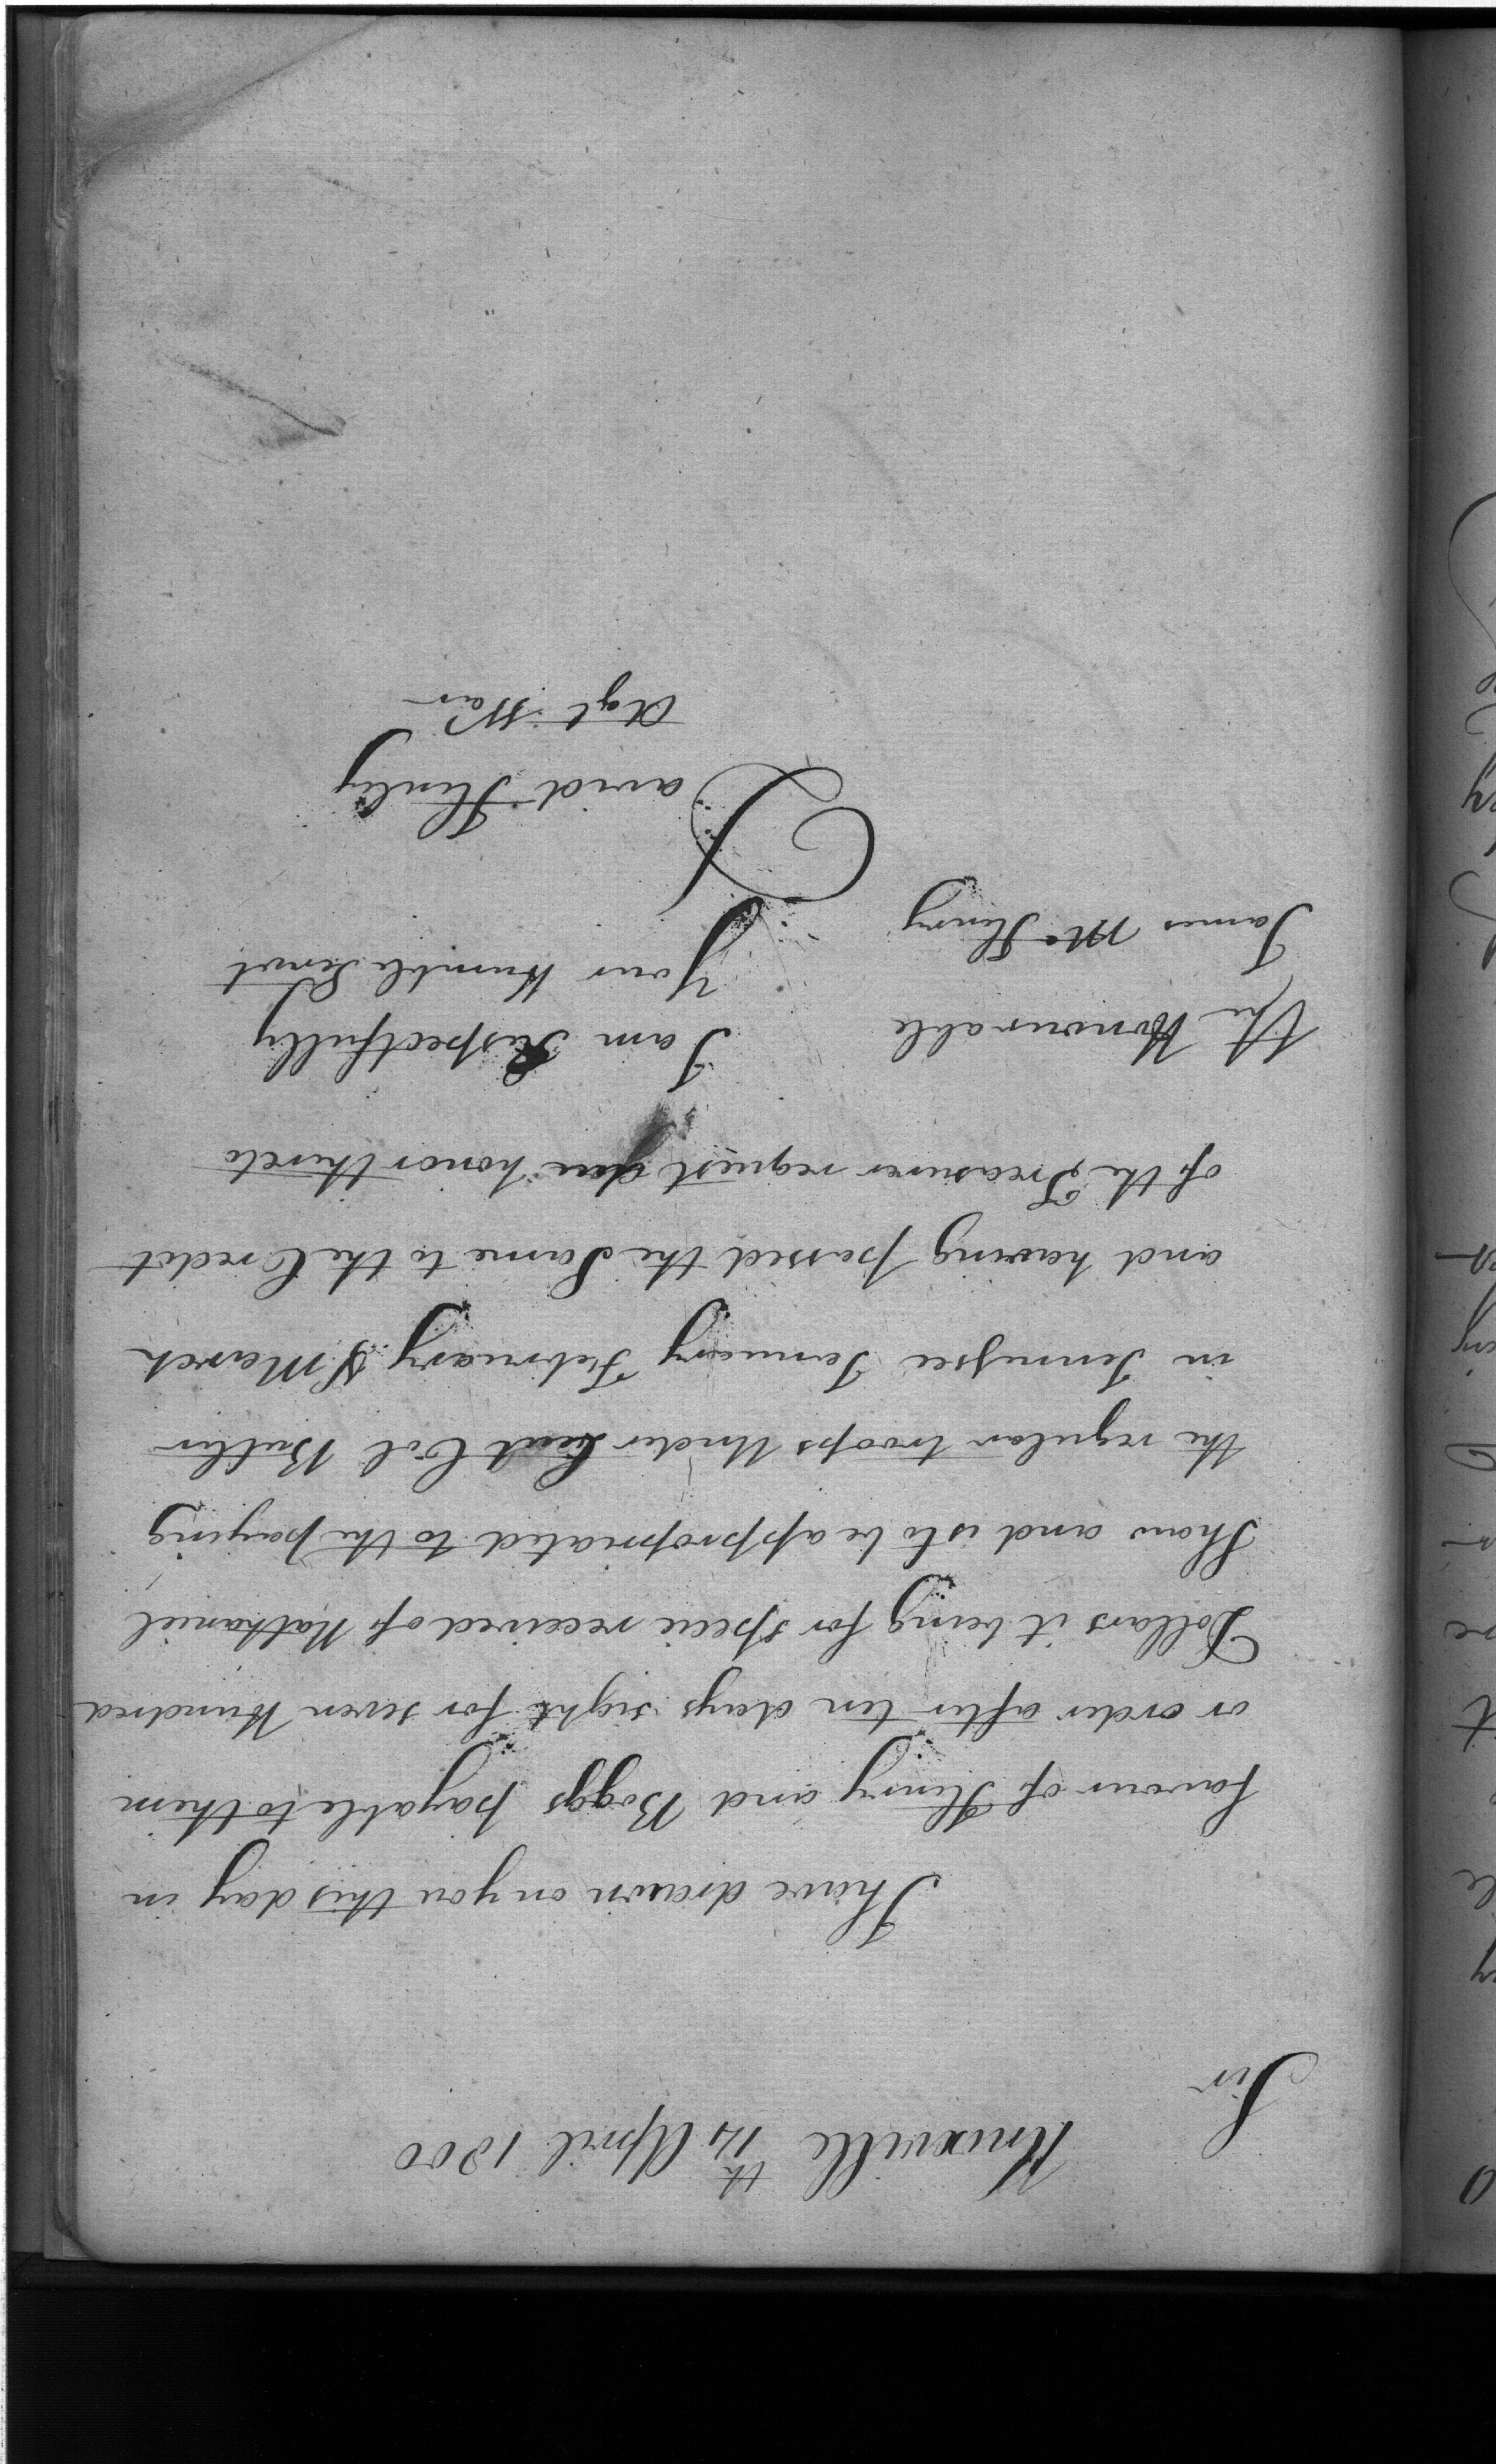 Knoxville 14th April 1800
Sir
I have drawn on you this day in
favour of Henry and Boggs payable to them
or order after ten days sight for seven Hundred
Dollars it being for specie received of Nathaniel
Thaw and is to be appropriated to the paying
the regular troops Under Leut Col Butler
in Tennessee January February & March
and having passed the Same to the Credit
of the Treasurer request due honor thereto
I am Respectfully
Your Humble Servt
David Henley
Agt War
The Honourable
James McHenry